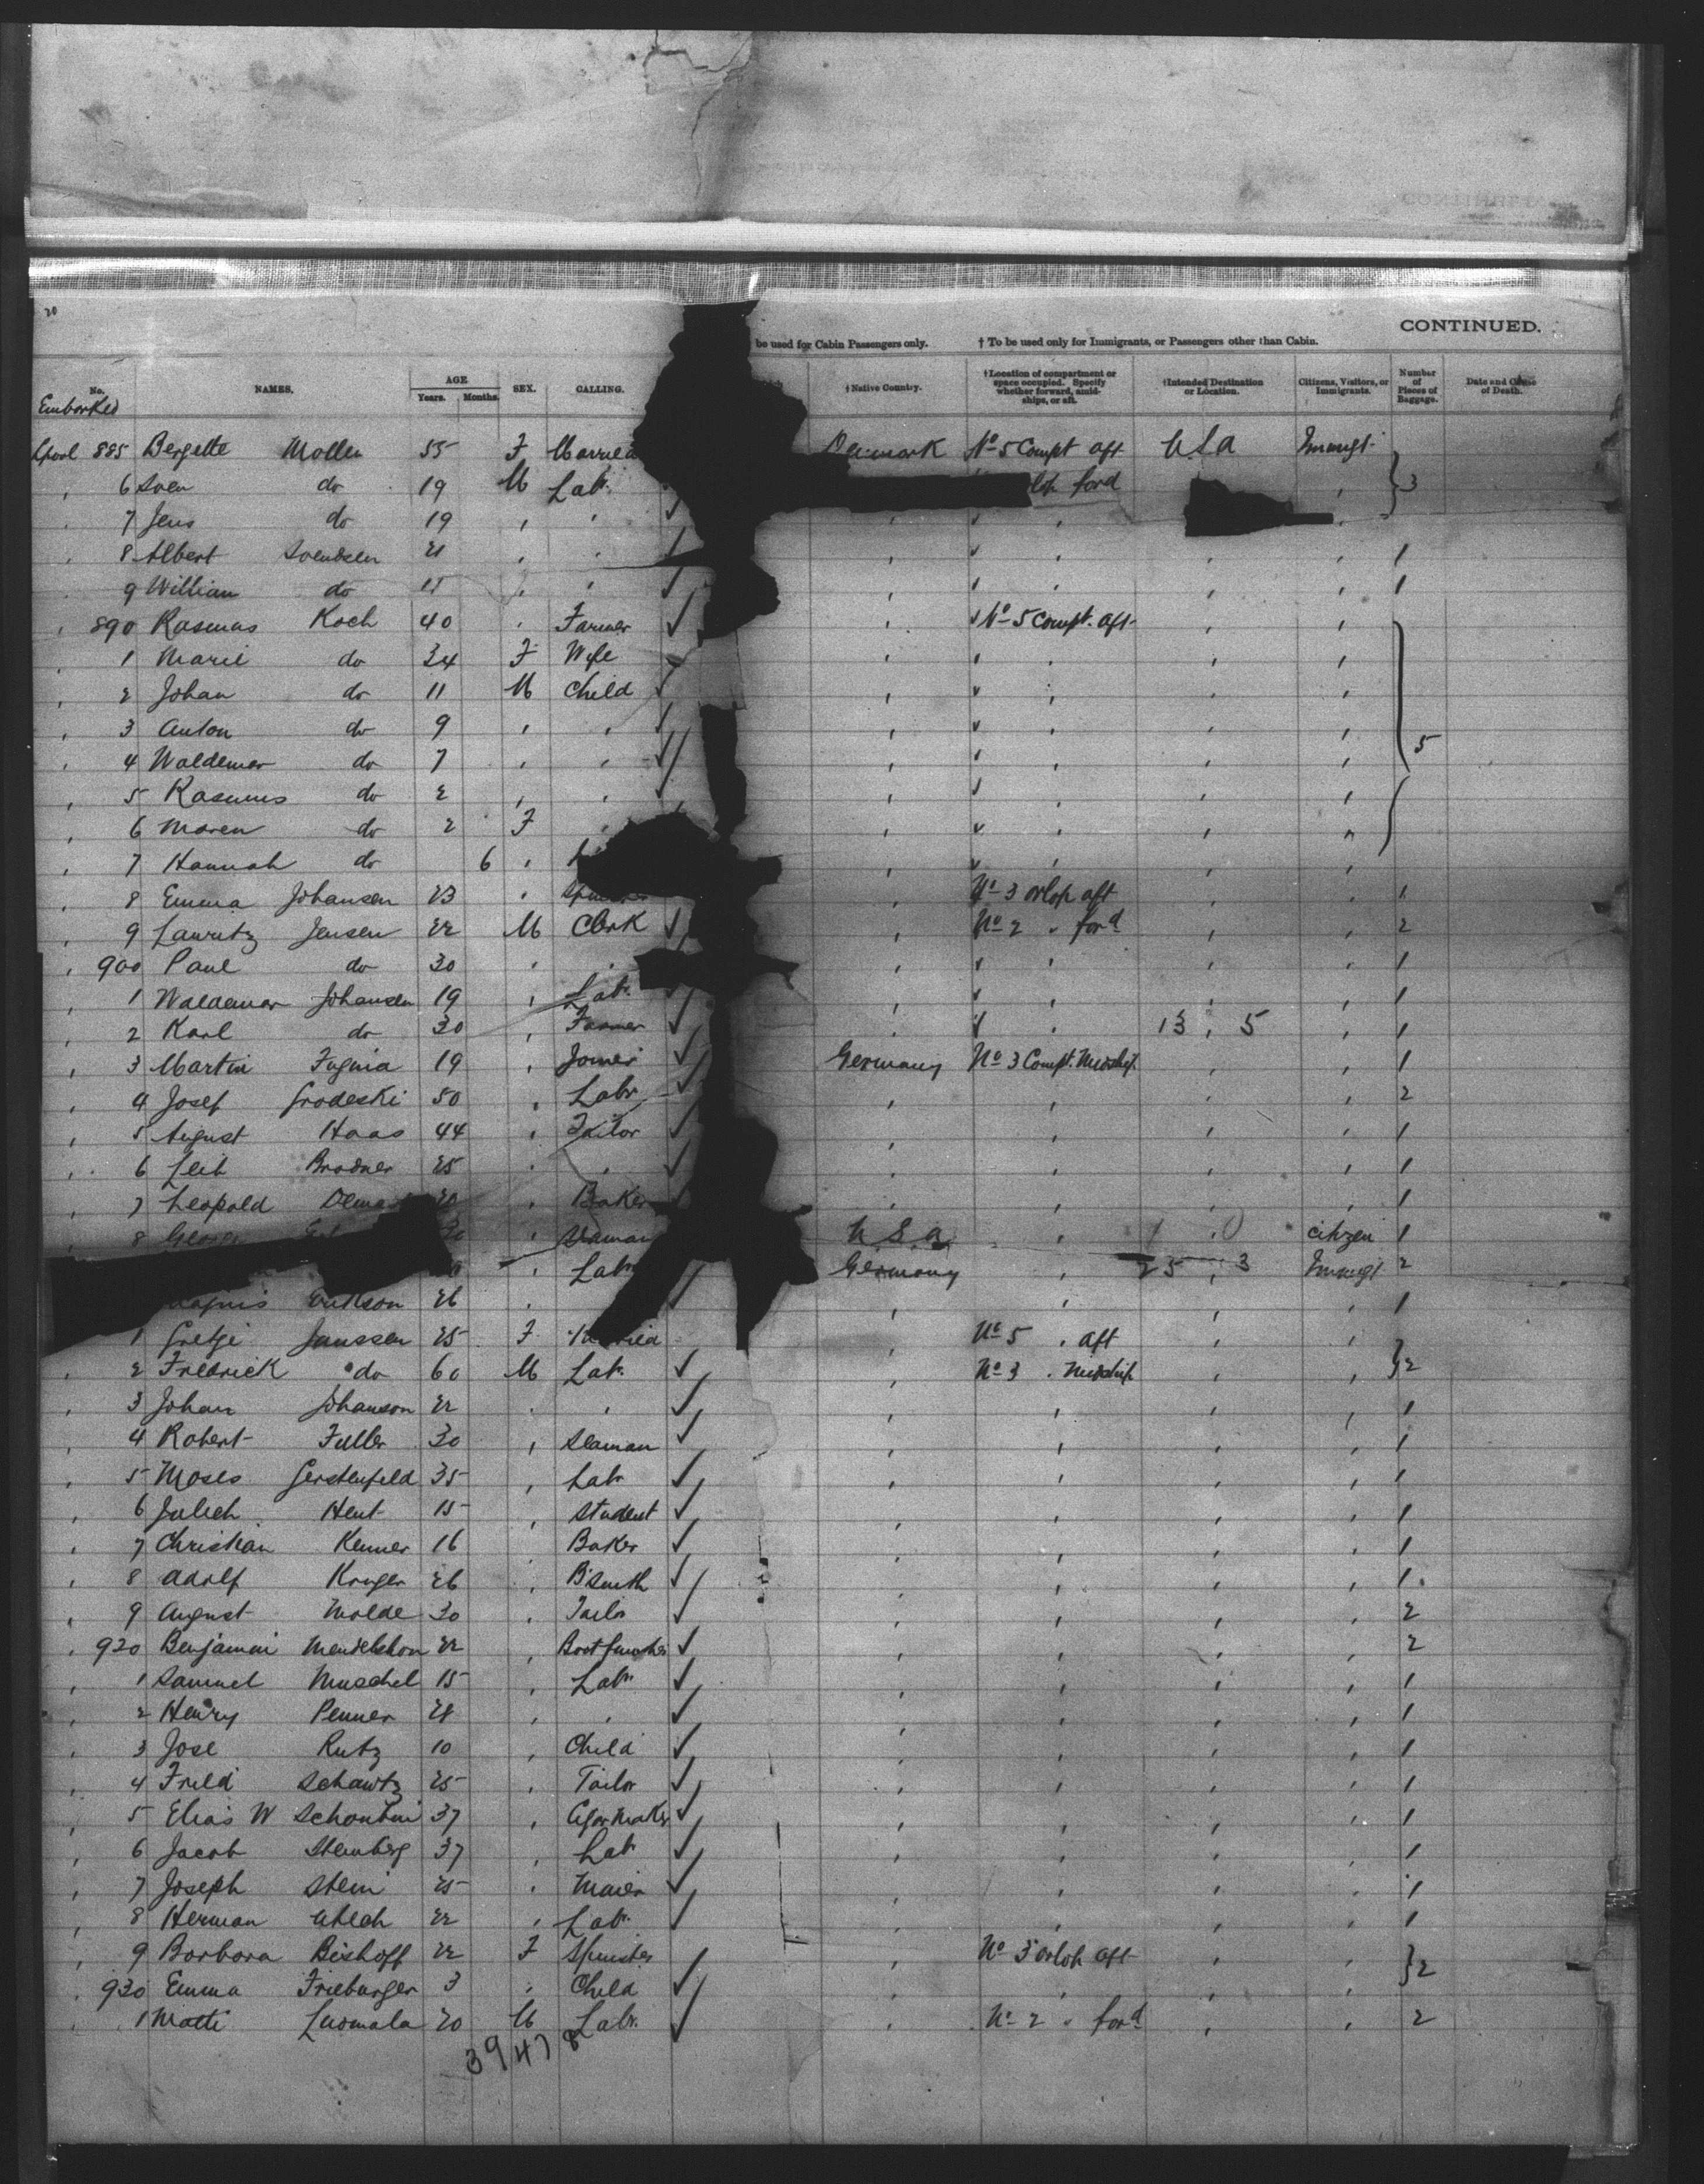 20
CONTINUED.
be used for Cabin Passengers only. † To be used only for Immigrants, or Passengers other than Cabin.
No. NAMES. AGE Years. Months. SEX. CALLING. †Native Country. †Location of compartment or space occupied. Specify whether forward, amidships, or aft. †Intended Destination or Location. Citizens, Visitors, or Immigrants. Number of Pieces of Baggage. Date and Cause of Death.
Embarked
Lpool 885 Bergette Moller 55 F Married Denmark No 5 Compt aft USA Immigt
6 Sven do 19 M Labr. ford } 3
7 Jens do 19
8 Albert Svendsen 21 1
9 William do 1
890 Rasmus Koch 40 Farmer No 5 Compt. aft
1 Marie do 34 F Wife
2 Johan do 11 M Child
3 Anton do 9
4 Waldemar do 7 5
5 Rasmus do 2
6 Maren do 2 F
7 Hannah do 6
8 Emma Johansen 23 No 3 orlop aft 1
9 Lauritz Jensen 22 M Clerk No 2 " ford 2
900 Paul do 30 1
1 Waldemar Johansen 19 Labr. 1
2 Karl do 30 Farmer 13 5 1
3 Martin 19 Joiner Germany No 3 Compt. Midship 1
4 Josef Grodeski 50 Labr 2
5 August Haas 44 Tailor 1
6 Leib Brodner 25 1
7 Leopold Baker 1
8 Seaman U.S.A Citizen 1
Labr Germany 25 3 Immigt 2
Erikson 26 1
1 Gretje Janssen 25 F No 5 " aft
2 Fredrick do 60 M Labr. No 3 " Midship } 2
3 Johan Johanson 22 1
4 Robert Fuller 30 Seaman 1
5 Moses Gerstenfeld 35 Labr 1
6 Hent 15 Student 1
7 Christian Kenner 16 Baker 1
8 Adolf Kruger 26 B'Smith 1
9 August Molde 30 Tailor 2
920 Benjamin Mendelshon 22 2
1 Samuel Muschel 15 Labr 1
2 Henry Penner 28 1
3 Jose Rutz 10 Child 1
4 Schawtz 25 Tailor 1
5 Elias W 37 Cigar Maker 1
6 Jacob Steinberg 37 Labr 1
7 Joseph Stein 25 1
8 Herman 22 Labr. 1
9 Barbara Bishoff 22 F Spinster No 3 orlop aft
930 Emma Frieburger 3 Child } 2
1 Matti Luomala 20 M Labr. No 2 " ford 2
39478